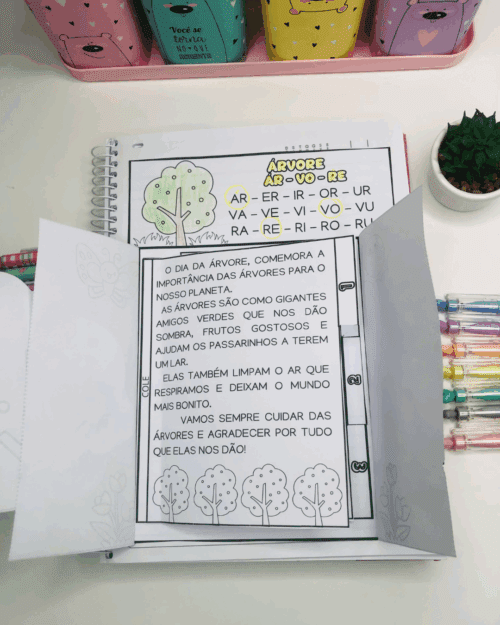 Você se
torna
ÁRVORE
ÁR-VO-RE
AR - ER - IR - OR - UR
VA - VE - VI - VO - VU
RA - RE - RI - RO - RU
O DIA DA ÁRVORE, COMEMORA A
IMPORTÂNCIA DAS ÁRVORES PARA O
NOSSO PLANETA.
AS ÁRVORES SÃO COMO GIGANTES
AMIGOS VERDES QUE NOS DÃO
SOMBRA, FRUTOS GOSTOSOS E
AJUDAM OS PASSARINHOS A TEREM
UM LAR.
ELAS TAMBÉM LIMPAM O AR QUE
RESPIRAMOS E DEIXAM O MUNDO
MAIS BONITO.
VAMOS SEMPRE CUIDAR DAS
ÁRVORES E AGRADECER POR TUDO
QUE ELAS NOS DÃO!
COLE
1
2
3